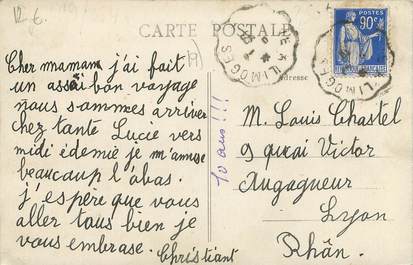 R. 6.
CARTE POSTALE
POSTES
90c
Adresse
LIMOGES
LIMOGES
Cher mamam j'ai fait
un assai bon voyage
nous sommes arriver
chez tante Lucie vers
midi édemie je m'amuse
beaucoup l'abas.
j'espére que vous
aller tous bien je
vous embrase.
Christiant
10 ans!!!
M. Louis Chastel
9 quai Victor
Augagneur
Lyon
Rhân.